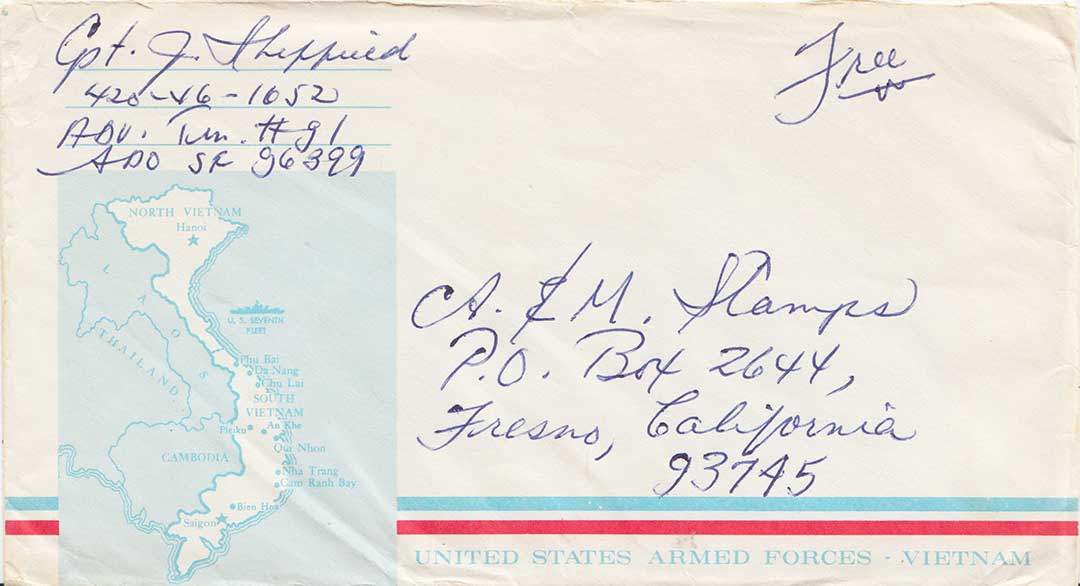 Cpt. J. Sheppied
420-46-1652
ADV. Tm. #91
APO SF 96399
Free
NORTH VIETNAM
Hanoi
LAOS
U. S. SEVENTH
FLEET
THAILAND
Phu Bai
Da Nang
Chu Lai
SOUTH
VIETNAM
An Khe
Pleiku
Qui Nhon
CAMBODIA
Nha Trang
Cam Ranh Bay
Bien Hoa
Saigon
A. & M. Stamps
P.O. Box 2644,
Fresno, California
93745
UNITED STATES ARMED FORCES - VIETNAM